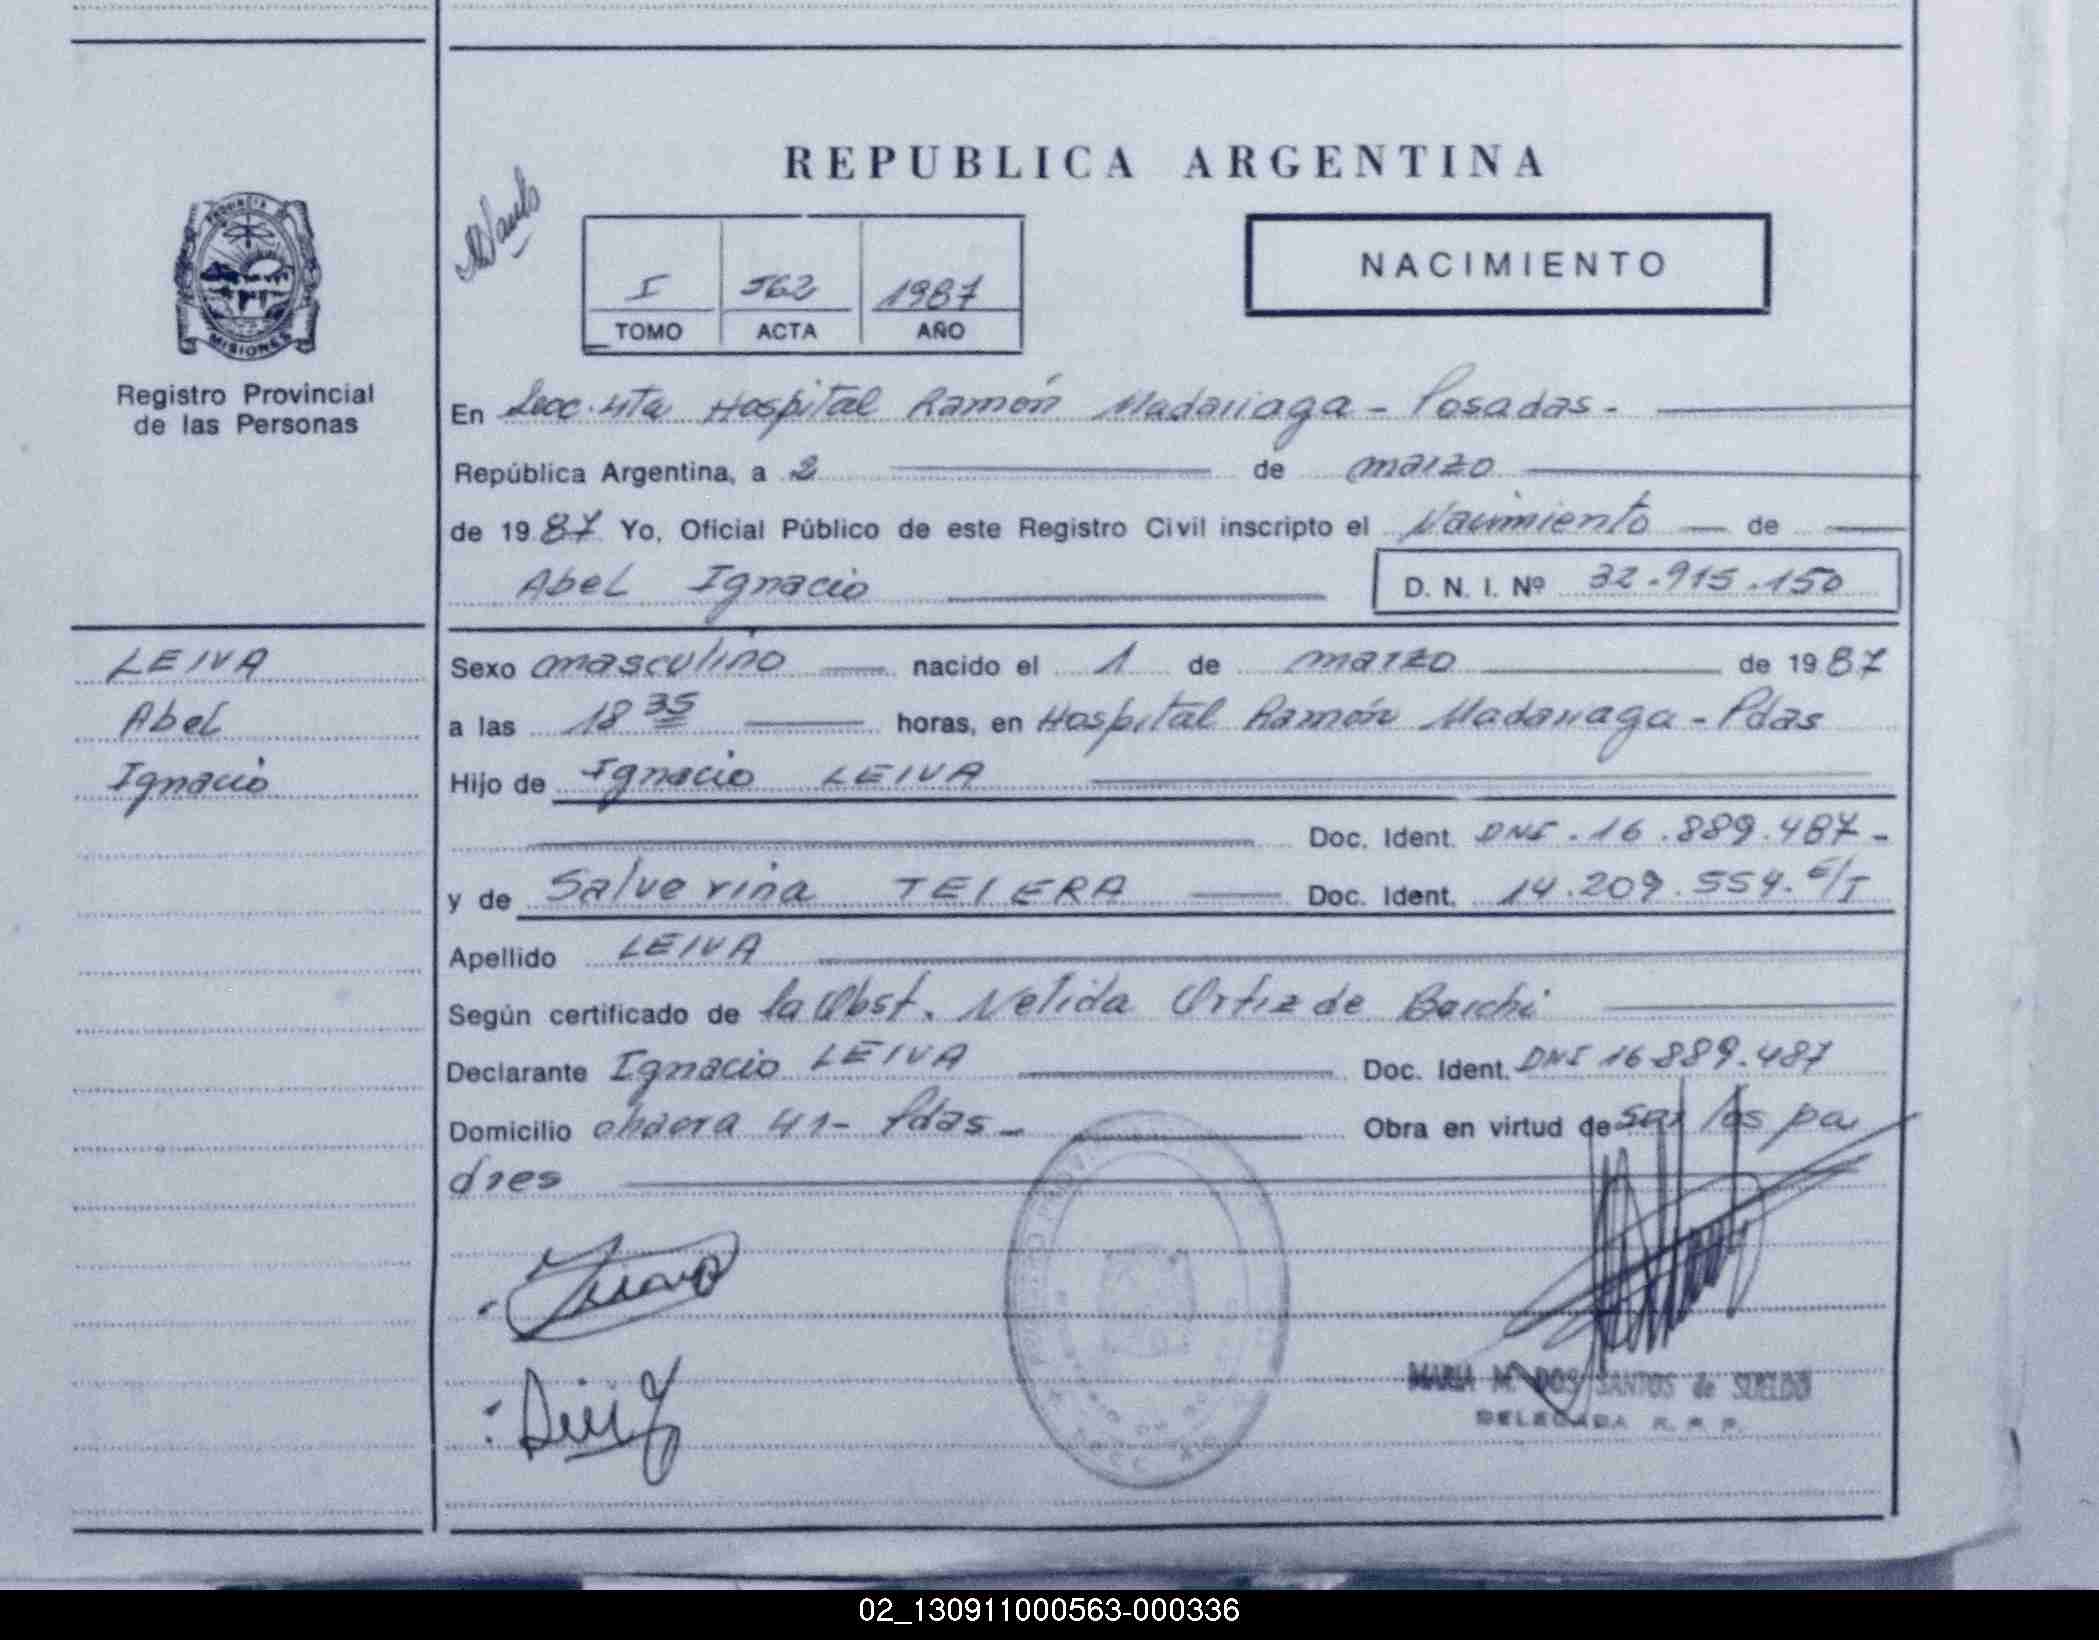 REPUBLICA ARGENTINA
NACIMIENTO
I 562 1987
TOMO ACTA AÑO
PROVINCIA DE
MISIONES
Registro Provincial
de las Personas
En Secc. 4ta Hospital Ramón Madariaga - Posadas -
República Argentina, a 2 de marzo
de 1987 Yo, Oficial Público de este Registro Civil inscripto el Nacimiento de
Abel Ignacio D. N. I. Nº 32.915.150
LEIVA
Abel
Ignacio
Sexo masculino nacido el 1 de marzo de 1987
a las 18 35 horas, en Hospital Ramón Madariaga - Pdas
Hijo de Ignacio LEIVA
Doc. Ident. DNI. 16.889.487-
y de Salverina TEIERA Doc. Ident. 14.209.554. E/T
Apellido LEIVA
Según certificado de la Obst. Nelida Ortiz de Barchi
Declarante Ignacio LEIVA Doc. Ident. DNI 16889.487
Domicilio chacra 41- Pdas - Obra en virtud de ser los pa
dres
MARIA M. DOS SANTOS de SUELDO
DELEGADA R. P. P.
02_130911000563-000336